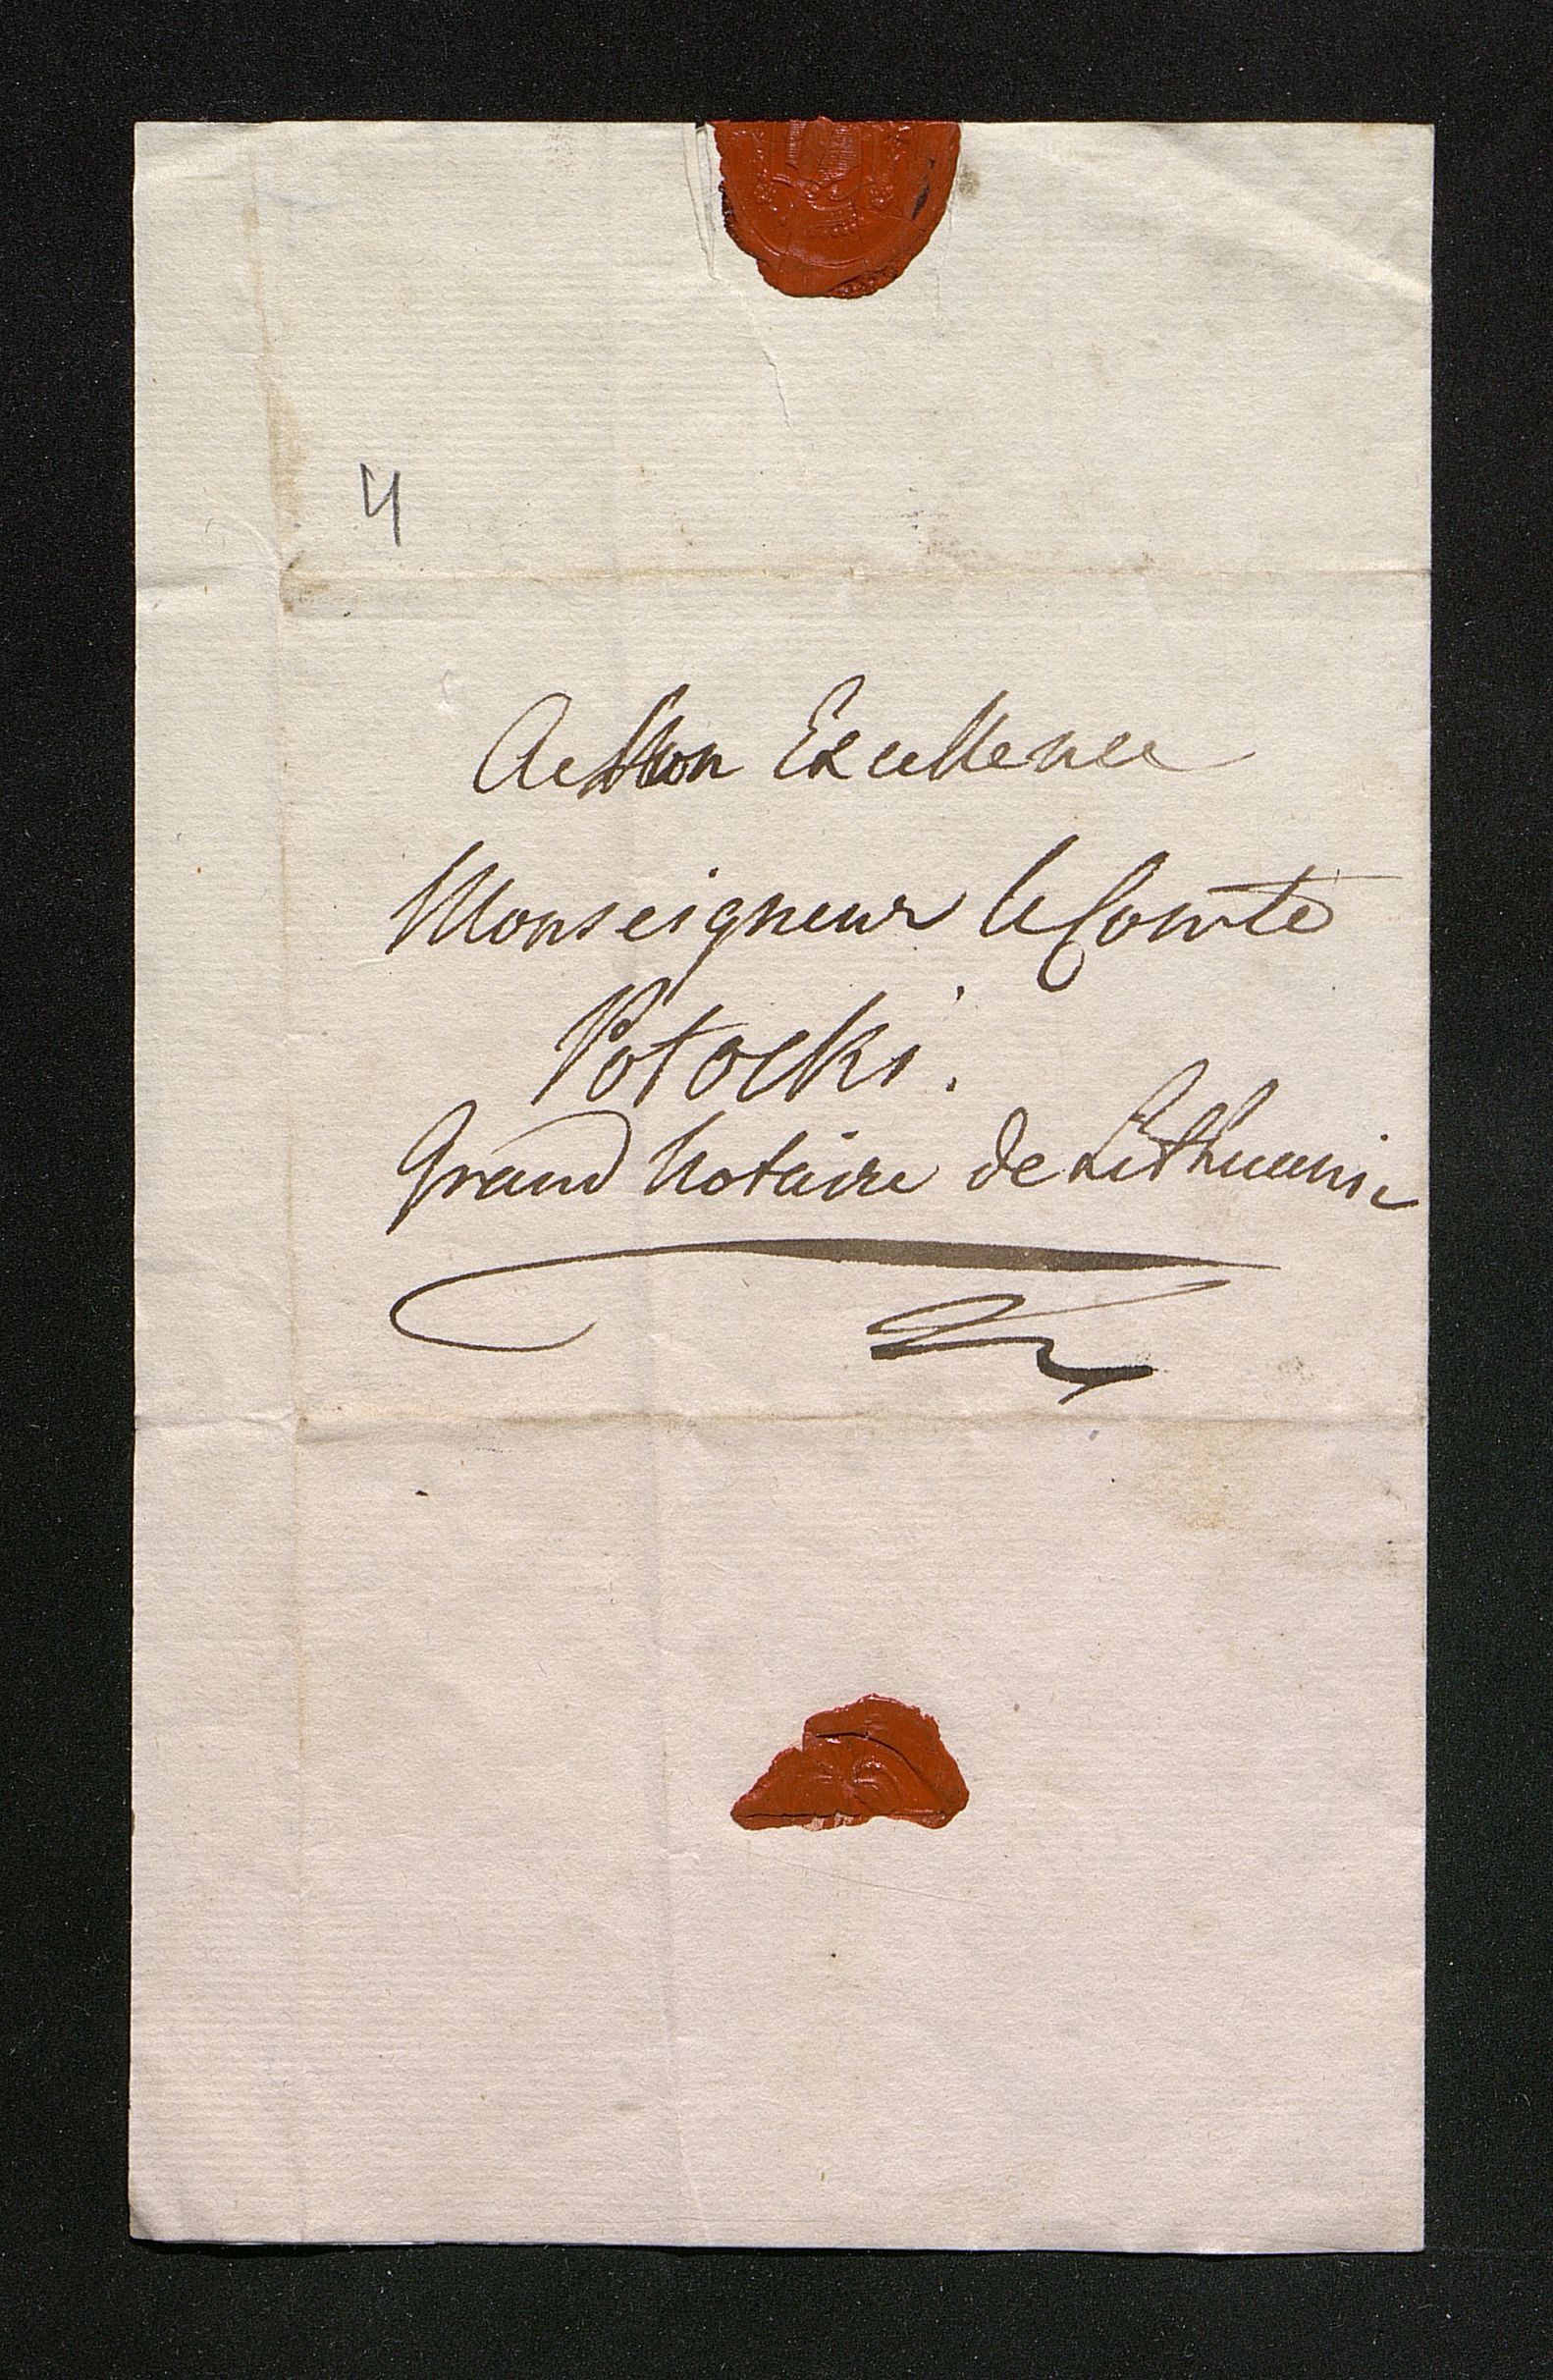 4
A Son Excellence
Monseigneur le Comte
Potocki.
Grand Notaire de Lithuanie